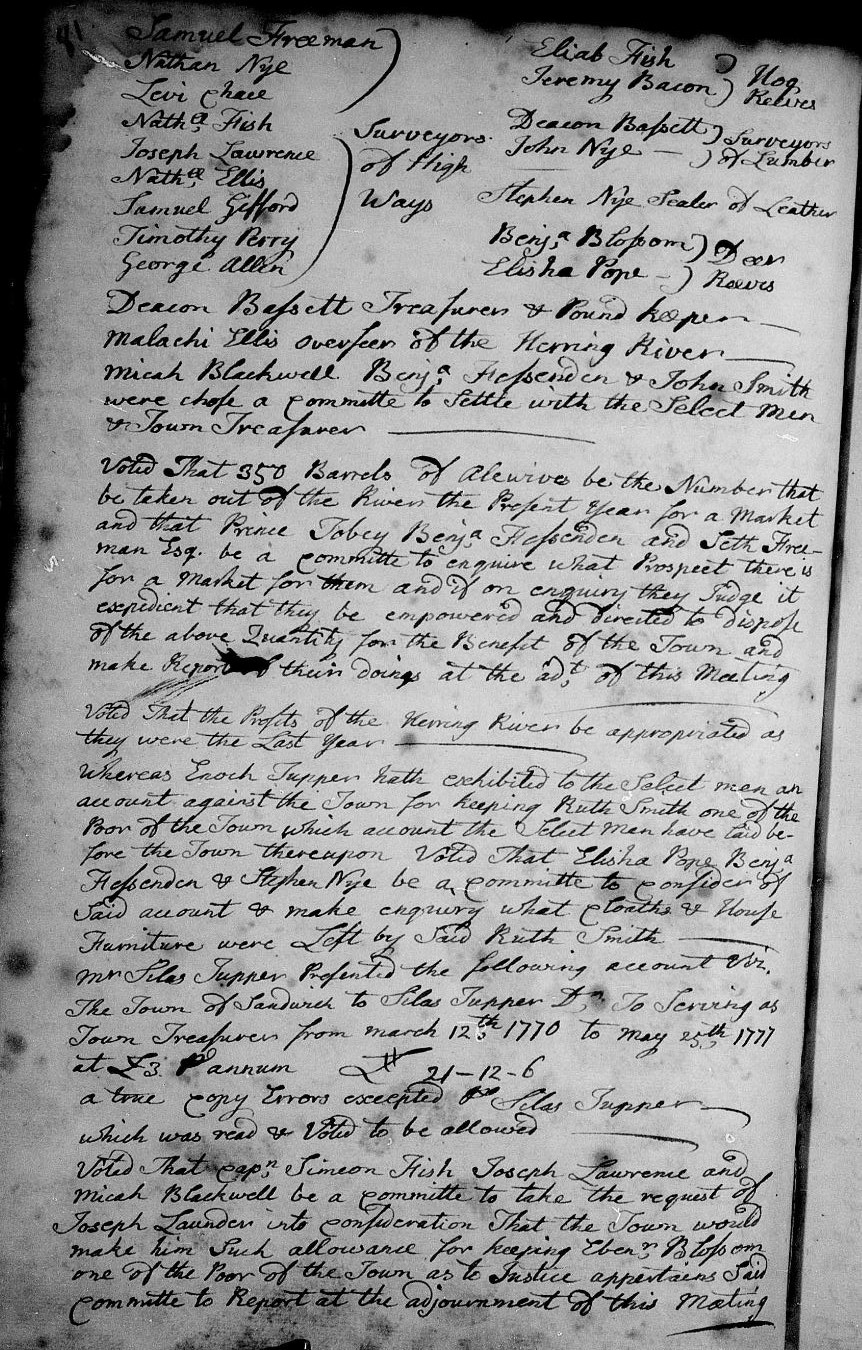 Samuel Freeman
Nathan Nye
Levi Chace
Nathel Fish
Joseph Lawrence
Nathel Ellis
Samuel Gifford
Timothy Perry
George Allen
Surveyors
of High
Ways
Eliab Fish
Jeremy Bacon
Hog
Reeves
Deacon Bassett
John Nye —
Surveyors
of Lumber
Stephen Nye Sealer of Leather
Benja Blossom
Elisha Pope —
Deer
Reeves
Deacon Bassett Treasurer & Pound keeper —
Malachi Ellis overseer of the Herring River —
Micah Blackwell Benja Fessenden & John Smith
were chose a Committe to Settle with the Select Men
& Town Treasurer —
Voted That 350 Barrels of Alewives be the Number that
be taken out of the River the Present Year for a Market
and that Prince Tobey Benja Fessenden and Seth Free-
man Esq. be a Committe to enquire what Prospect there is
for a Market for them and if on enquiry they Judge it
expedient that they be empowered and directed to dispose
of the above Quantity for the Benefit of the Town and
make Report of their doings at the adt of this Meeting
Voted That the Profits of the Herring River be appropriated as
they were the Last Year —
Whereas Enoch Tupper hath exhibited to the Select men an
account against the Town for keeping Ruth Smith one of the
Poor of the Town which account the Select Men have laid be-
fore the Town thereupon Voted That Elisha Pope Benja
Fessenden & Stephen Nye be a Committe to Consider of
Said account & make enquiry what Cloaths & House
Furniture were Left by Said Ruth Smith —
Mr Silas Tupper Presented the following account Viz.
The Town of Sandwich to Silas Tupper Dr. To Serving as
Town Treasurer from march 12th 1770 to May 25th 1777
at £3 P annum £ 21-12-6
a true Copy Errors excepted Silas Tupper —
which was read & Voted to be allowed —
Voted That Capn Simeon Fish Joseph Lawrence and
Micah Blackwell be a Committe to take the request of
Joseph Launder into Consideration That the Town would
make him Such allowance for keeping Ebenr Blossom
one of the Poor of the Town as to Justice appertains Said
Committe to Report at the adjournment of this Meeting